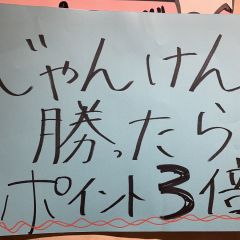 じゃんけん
勝ったら
ポイント3倍